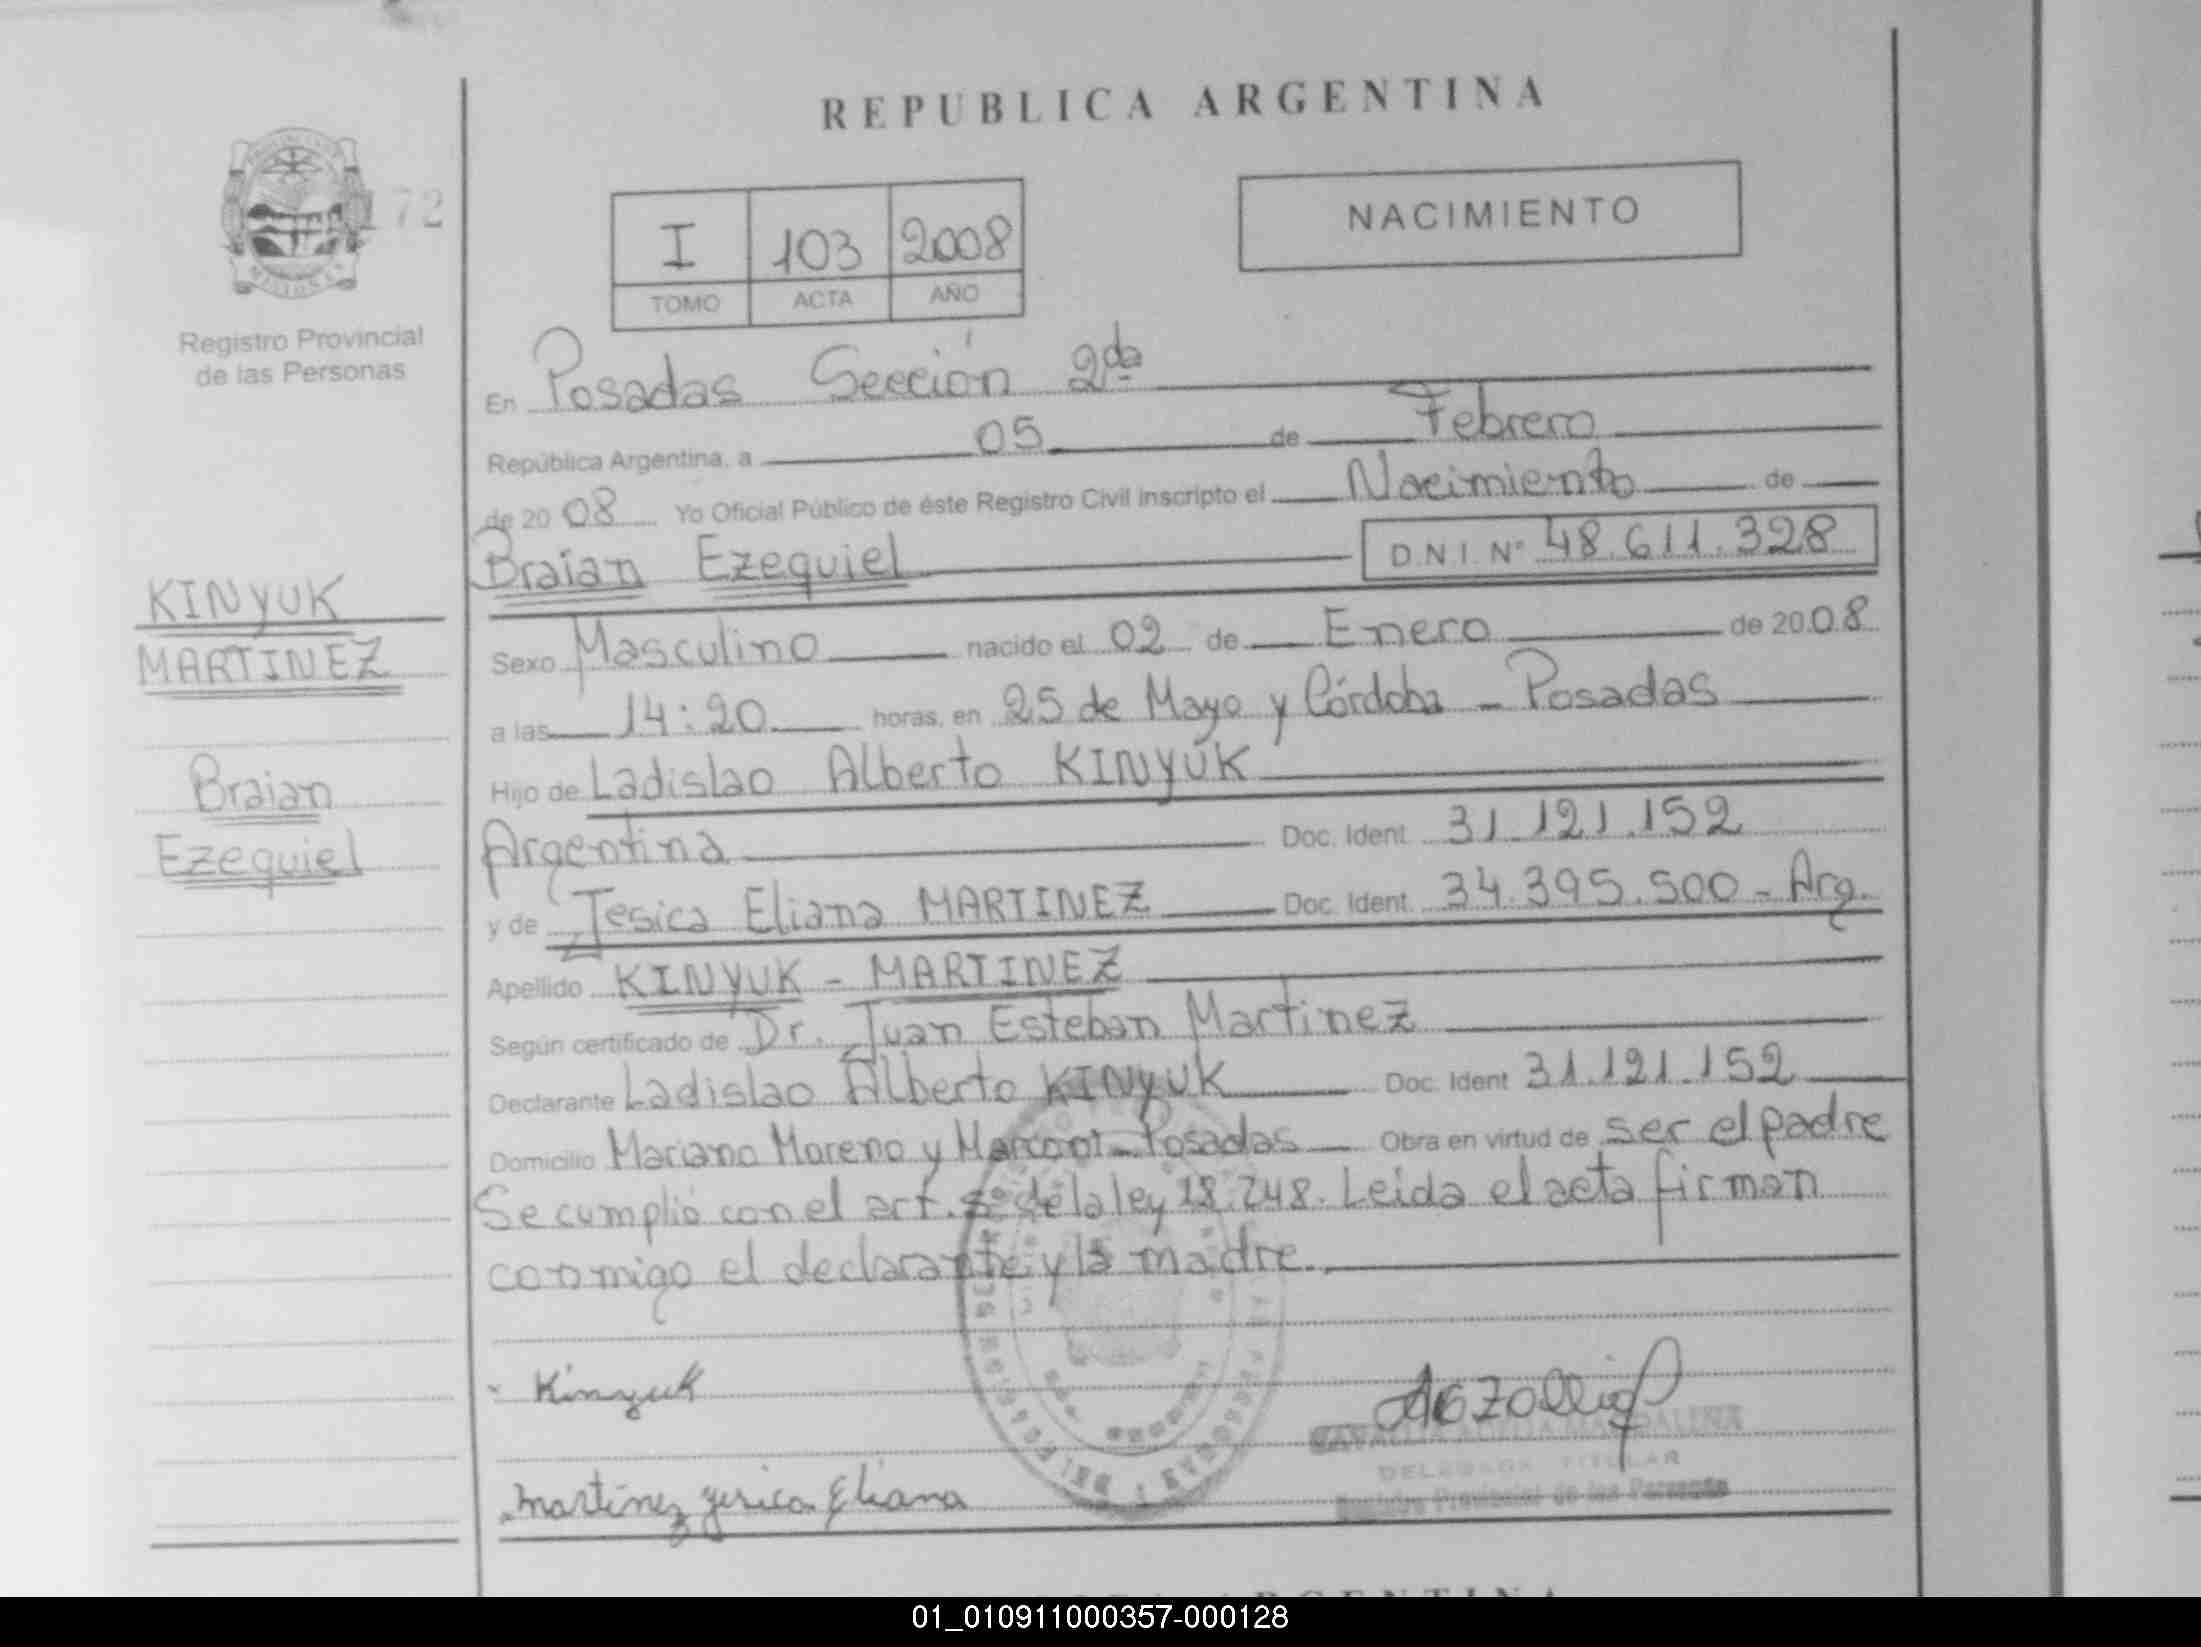 REPUBLICA ARGENTINA
72
I 103 2008
TOMO ACTA AÑO
NACIMIENTO
Registro Provincial
de las Personas
KINYUK
MARTINEZ
Braian
Ezequiel
En Posadas Sección 2da
República Argentina, a 05 de Febrero
de 2008 Yo Oficial Público de éste Registro Civil inscripto el Nacimiento de
Braian Ezequiel D.N.I. N° 48.611.328
Sexo Masculino nacido el 02 de Enero de 2008
a las 14:20 horas, en 25 de Mayo y Córdoba - Posadas
Hijo de Ladislao Alberto KINYUK
Argentina Doc. Ident 31.121.152
y de Jesica Eliana MARTINEZ Doc. Ident. 34.395.500 - Arg.
Apellido KINYUK - MARTINEZ
Según certificado de Dr. Juan Esteban Martinez
Declarante Ladislao Alberto KINYUK Doc. Ident 31.121.152
Domicilio Mariano Moreno y Posadas Obra en virtud de ser el padre
Se cumplió con el art. de la ley 18.248. Leida el acta firman
conmigo el declarante y la madre.
Kinyuk
Martinez Jesica Eliana
DELEGADA TITULAR
Registro Provincial de las Personas
01_010911000357-000128